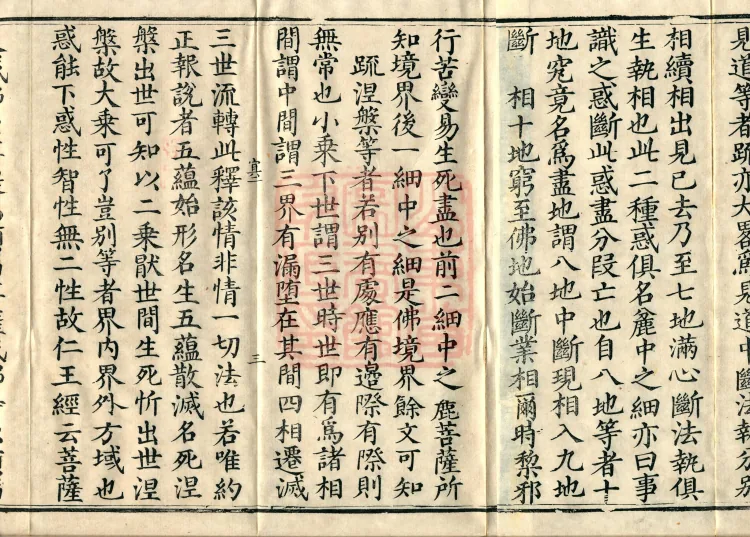 見道等者疏亦大畧爲見道中斷法執分別
相續相出見已去乃至七地滿心斷法執俱
生執相也此二種惑俱名麁中之細亦曰事
識之惑斷此惑盡分段亡也自八地等者十
地究竟名爲盡地謂八地中斷現相入九地
斷 相十地窮至佛地始斷業相爾時黎邪
行苦變易生死盡也前二細中之麁菩薩所
知境界後一細中之細是佛境界餘文可知
疏涅槃等者若別有處應有邊際有際則
無常也小乘下世謂三世時世即有爲諸相
間謂中間謂三界有漏墮在其間四相遷滅
亶 三
三世流轉此釋該情非情一切法也若唯約
正報說者五蘊始形名生五蘊散滅名死涅
槃出世可知以二乘厭世間生死忻出世涅
槃故大乘可了豈別等者界內界外方域也
惑䏻下惑性智性無二性故仁王經云菩薩